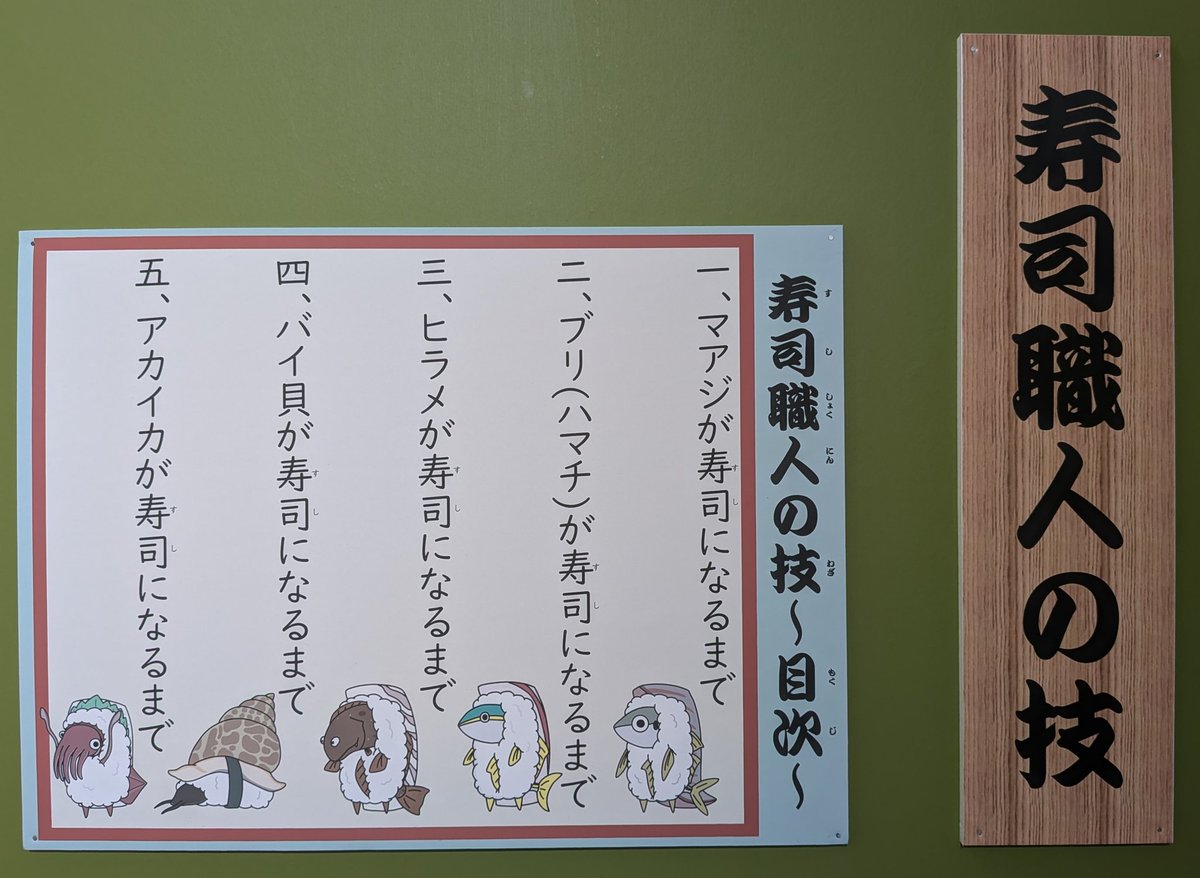 寿司職人の技
寿司職人の技～目次～
一、マアジが寿司になるまで
二、ブリ(ハマチ)が寿司になるまで
三、ヒラメが寿司になるまで
四、バイ貝が寿司になるまで
五、アカイカが寿司になるまで